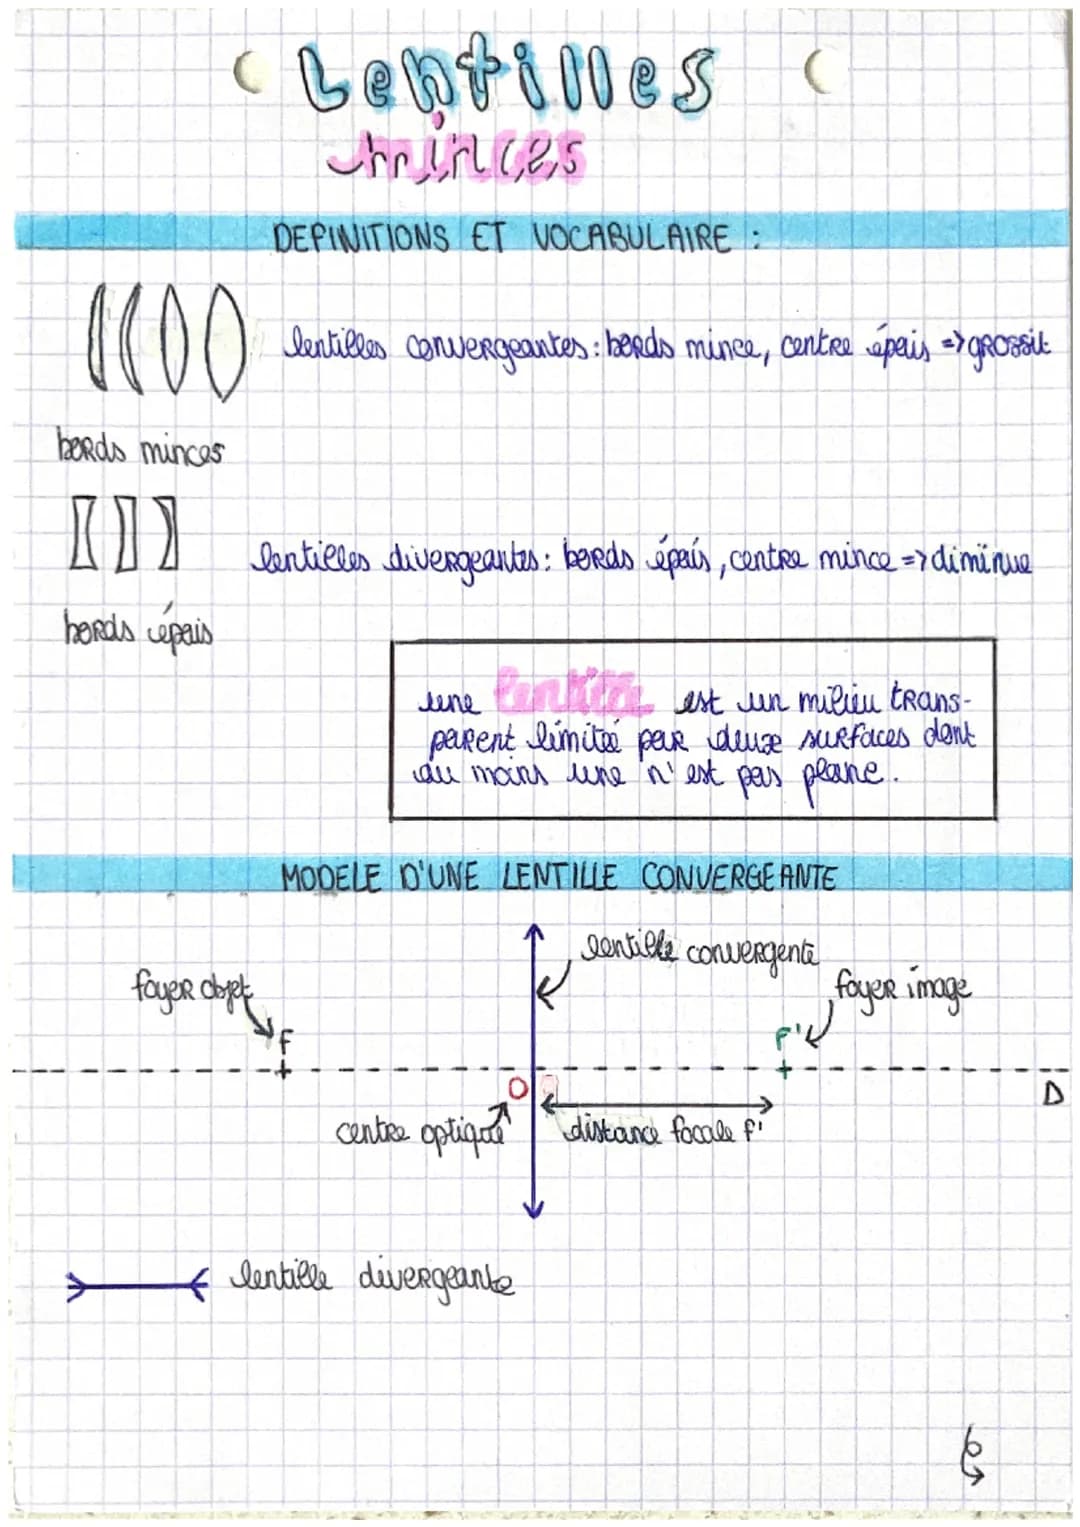 Lentilles
minces
DEFINITIONS ET VOCABULAIRE :
lentilles convergeantes : bords mince, centre épais => grossit
bords minces
lentilles divergeantes : bords épais, centre mince => diminue
bords épais
une lentille est un milieu trans-
parent limitée par deux surfaces dont
au moins une n'est pas plane.
MODELE D'UNE LENTILLE CONVERGEANTE
lentille convergente
foyer objet
foyer image
F
F'
O
D
centre optique
distance focale f'
lentille divergeante